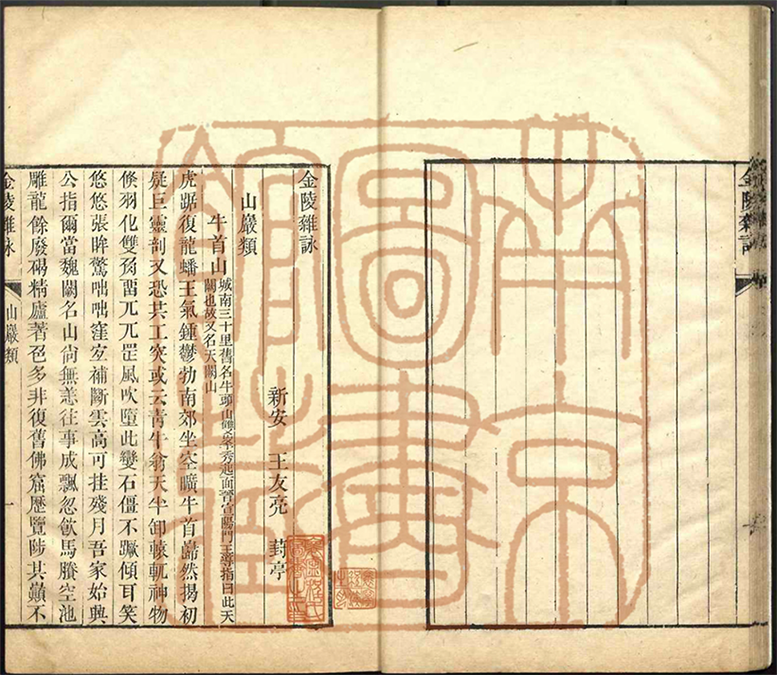 金陵雜詠
新安 王友亮 葑亭
山巖類
牛首山 城南三十里舊名牛頭山雙峯秀起面晉宣陽門王導指曰此天
闕也故又名天闕山
虎踞復龍蟠王氣鍾鬱勃南郊坐空曠牛首巋然揭初
疑巨靈剖又恐共工突或云青牛翁天半卸轅軏神物
倏羽化雙角留兀兀罡風吹墮此變石僵不蹶傾耳笑
悠悠張眸驚咄咄窪宜補斷雲高可挂殘月吾家始興
公指爾當魏闕名山尙無恙往事成飄忽飲馬賸空池
雕龍餘廢碣精廬著名多非復舊佛窟歷覽陟其巔不
金陵雜詠 山巖類 一
金陵雜詠
南京圖書館藏